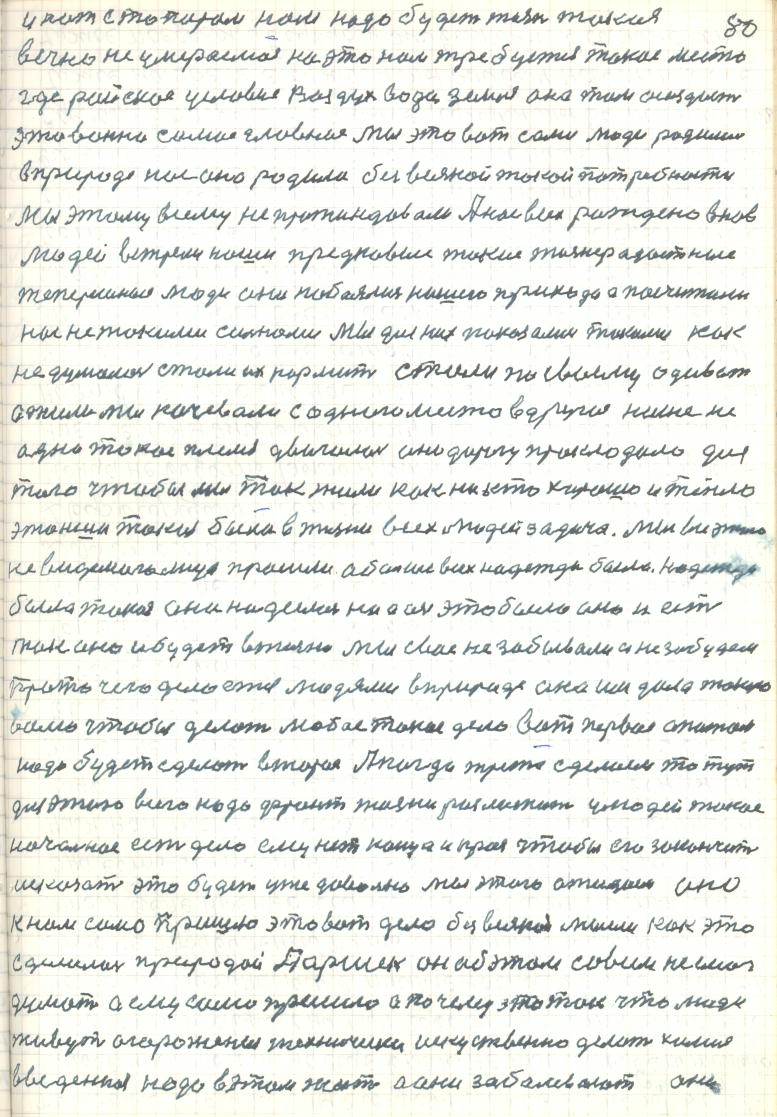 и вот с по порам нам надо будет жизн такая 80
вечно не умераемая на это нам требуется такое место
где райское условие воздух вода земля она там создаст
это вонно самое главное Мы это вот сами люди родились
в природе нас она родила без всякой такой потребности
Мы этому всему не протиндовали А нас всех рождено внов
людей встрели наши предковые такие жизнерадостные
теперешние люди они побоялися нашего прихода а посчитали
нас не такими силами Мы для них показалис такими как
не думалос стали их кормит стали по своему одиват
а жили мы кочевали с одного места в другия ныне не
одно такое племя двигалос оно дорогу прокладало для
того чтобы мы так жили как никто хорошо и тепло
это наша такая была в жизни всех людей задача. Мы вси этого
невидемого лица прошли а большевсех надежда была. Надежда
была такая они надеялис на ая это было оно и ест
так оно и будет в жизни Мы свое не забывали и не забудем
Против чего делается людями в природе она им дала такую
волю чтобы делат любое такое дело Вот первое опотом
надо будет сделат второе А когда третя сделаем то тут
для этого всего надо фронт жизни разложит у людей такое
началное ест дело ему нет конца и края чтобы его закончит
и сказат это будет уже довольно Мы этого ожидаем оно
к нам само пришло это вот дело без всякой мысли как это
сделалос природой Паршек он об этом совсим не смог
думат а ему само пришло а почему это так что люди
живут огороженыя технически искуственно делат химия
введения надо в этом жит а они заболевают они